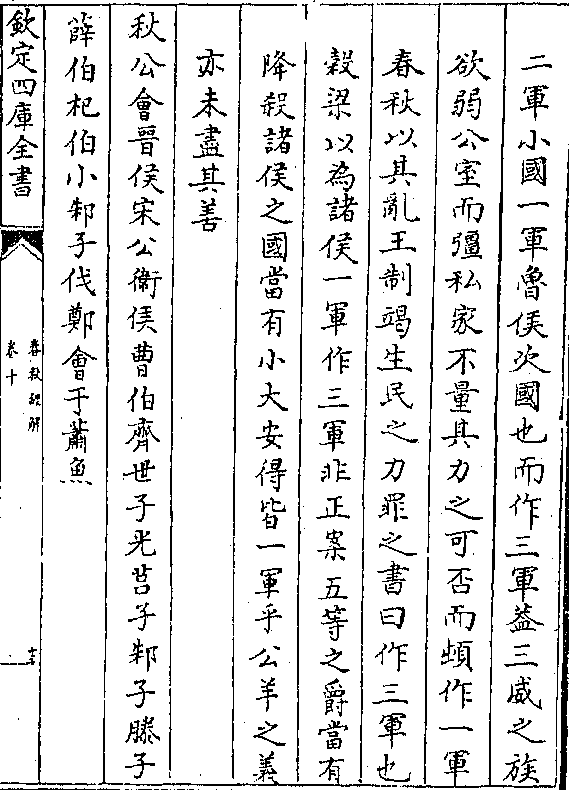 二軍小國一軍魯侯次國也而作三軍葢三威之族
欲弱公室而彊私家不量其力之可否而頓作一軍
春秋以其亂王制竭生民之力罪之書曰作三軍也
穀梁以為諸侯一軍作三軍非正案五等之爵當有
降殺諸侯之國當有小大安得皆一軍乎公羊之義
亦未盡其善
秋公會晉侯宋公衞侯曹伯齊世子光莒子邾子滕子
薛伯杞伯小邾子伐鄭會于蕭魚
欽定四庫全書
春秋經解
卷十